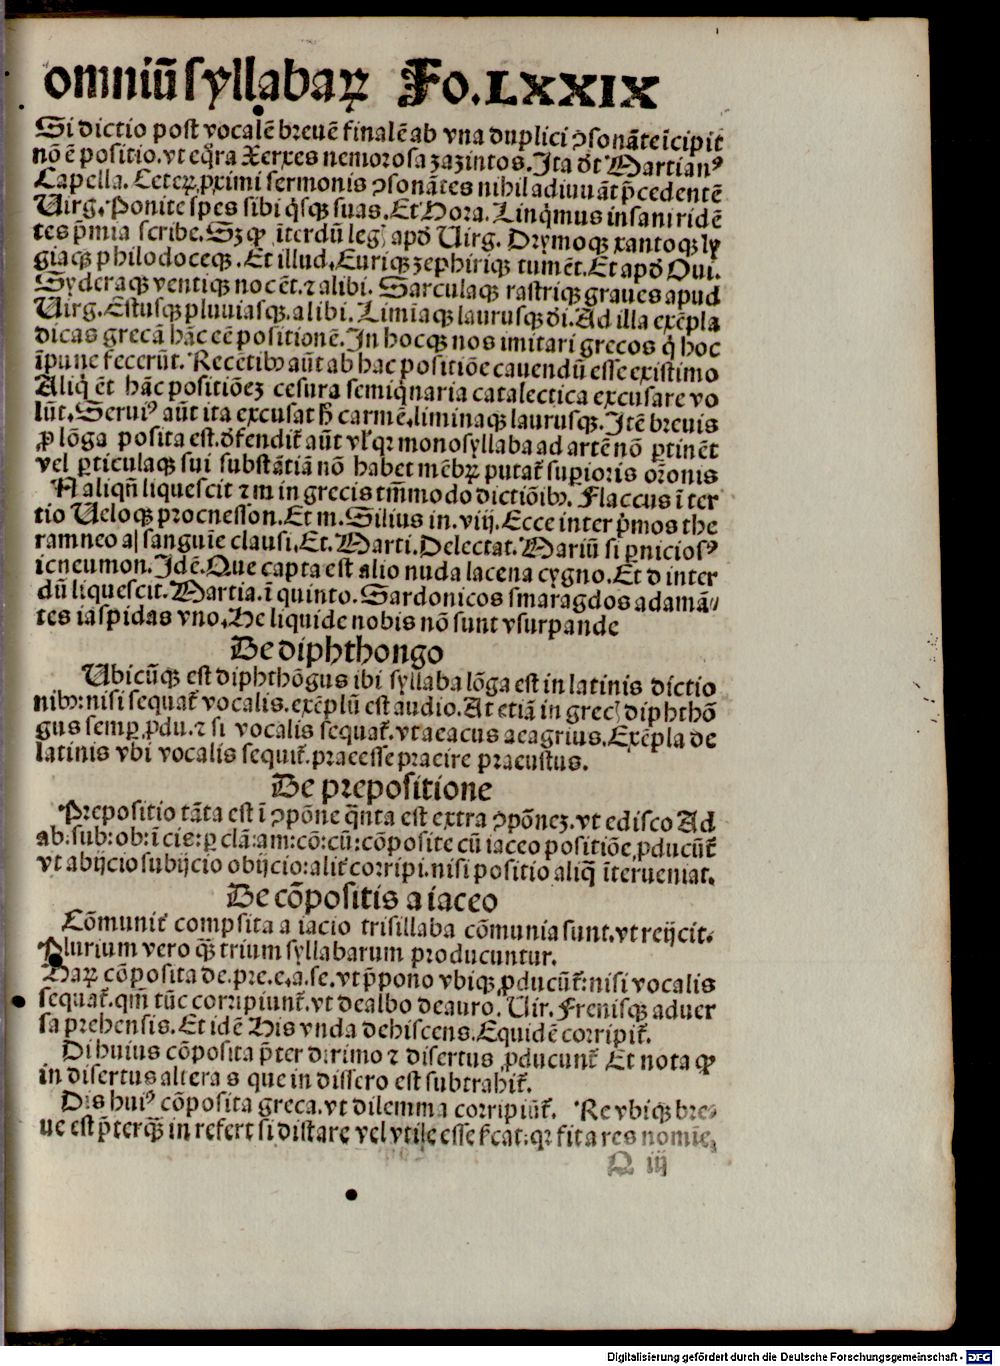 omniū syllabaꝝ Fo.LXXIX
Si dictio post vocalē breuē finalē ab vna duplici ꝯsonāte īcipit
nō ē positio.vt eq̄ra Xerxes nemorosa zazintos.Ita dt̄ Martianꝰ
Capella. Ceteꝝ ꝓximi sermonis ꝯsonātes nihil adiuuāt p̄cedentē
Uirg. Ponite spes sibi q̄sqꝫ suas. Et Hora. Linq̄mus insani ridē
tes p̄mia scribe. Sꝫ ꝙ īterdū legꝭ apd̄ Uirg. Drymoqꝫ xantoqꝫ ly
giaqꝫ philodoceqꝫ. Et illud. Euriqꝫ zephiriqꝫ tumēt. Et apd̄ Oui.
Syderaqꝫ ventiqꝫ nocēt. ⁊ alibi. Sarculaqꝫ rastriqꝫ graues apud
Uirg. Estusqꝫ pluuiasqꝫ. alibi. Limīaqꝫ laurusqꝫ di. Ad illa exēpla
dicas grecā hāc eē positionē. In hocqꝫ nos imitari grecos q̄ hoc
īpune fecerūt. Recētibꝰ aūt ab hac positiōe cauendū esse existimo
Aliq̄ ēt hāc positiōeꝫ cesura semiq̄naria catalectica excusare vo
lūt. Seruiꝰ aūt ita excusat h̄ carmē. liminaqꝫ laurusqꝫ. Itē breuis
ꝓ lōga posita est. dēfendit̄ aūt vl̓ qꝛ monosyllaba ad artē nō ꝑtinēt
vel ꝑticulaqꝫ sui substātiā nō habet mēbꝝ putat̄ suꝑioris or̄onis
N aliqn̄ liquescit ⁊ m in grecis tm̄modo dictiōibꝰ. Flaccus ī ter
tio Ueloqꝫ procnesson. Et m. Silius in.viij. Ecce inter p̄mos the
ramneo a sanguīe clausi. Et. Marti. Delectat. Mariū si ꝑniciosꝰ
icneumon. Idē. Que capta est alio nuda lacena cygno. Et d inter
dū liquescit. Martia. ī quinto. Sardonicos smaragdos adamā⸗
tes iaspidas vno. He liquide nobis nō sunt vsurpande
De diphthongo
Ubicūqꝫ est diphthōgus ibi syllaba lōga est in latinis dictio
nibꝰ: nisi sequat̄ vocalis. exēplū est audio. At etiā in grecꝭ diphthō
gus semꝑ ꝓdu. ⁊ si vocalis sequat̄. vt aeacus aeagrius. Exēpla de
latinis vbi vocalis sequit̄. praeesse praeire praeustus.
De prepositione
Prepositio tāta est ī ꝯpōne q̄nta est extra ꝯpōneꝫ. vt edisco Ad
ab: sub: ob: ī cis: ꝑ clā: am: cō: cū: cōposite cū iaceo positiōe ꝓducūt̄
vt abijcio subijcio obijcio: alit̄ corripi. nisi positio aliq̄ īterueniat.
De cōpositis a iaceo
Cōmunit̄ compsita a iacio trisillaba cōmunia sunt. vt reijcit.
Plurium vero qꝫ̄ trium syllabarum producuntur.
Haꝝ cōposita de. pre. e. a. se. vt p̄pono vbiqꝫ ꝓducūt̄: nisi vocalis
sequat̄. qm̄ tūc corripiunt̄. vt dealbo deauro. Uir. Frenisqꝫ aduer
sa prehensis. Et idē His vnda dehiscens. Equidē corripit̄.
Di huius cōposita p̄ter dirimo ⁊ disertus ꝓducunt̄ Et nota ꝙ
in disertus altera s que in dissero est subtrahit̄.
Dis huiꝰ cōposita greca. vt dilemma corripiūt̄. Re vbiqꝫ bre⸗
ue est p̄terqꝫ̄ in refert si distare vel vtile esse s̄cat: qꝛ fit a res nomīe,
Q iij
Digitalisierung gefördert durch die Deutsche Forschungsgemeinschaft - DFG